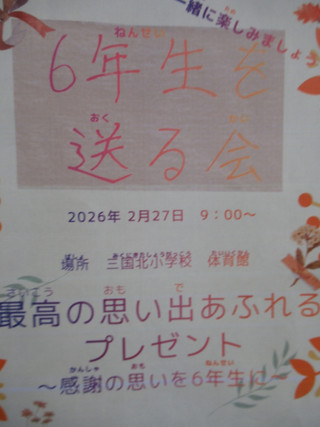 一緒に楽しみましょう
6年生を
送る会
2026年 2月27日 9:00～
場所 三国北小学校 体育館
最高の思い出あふれる
プレゼント
～感謝の思いを6年生に